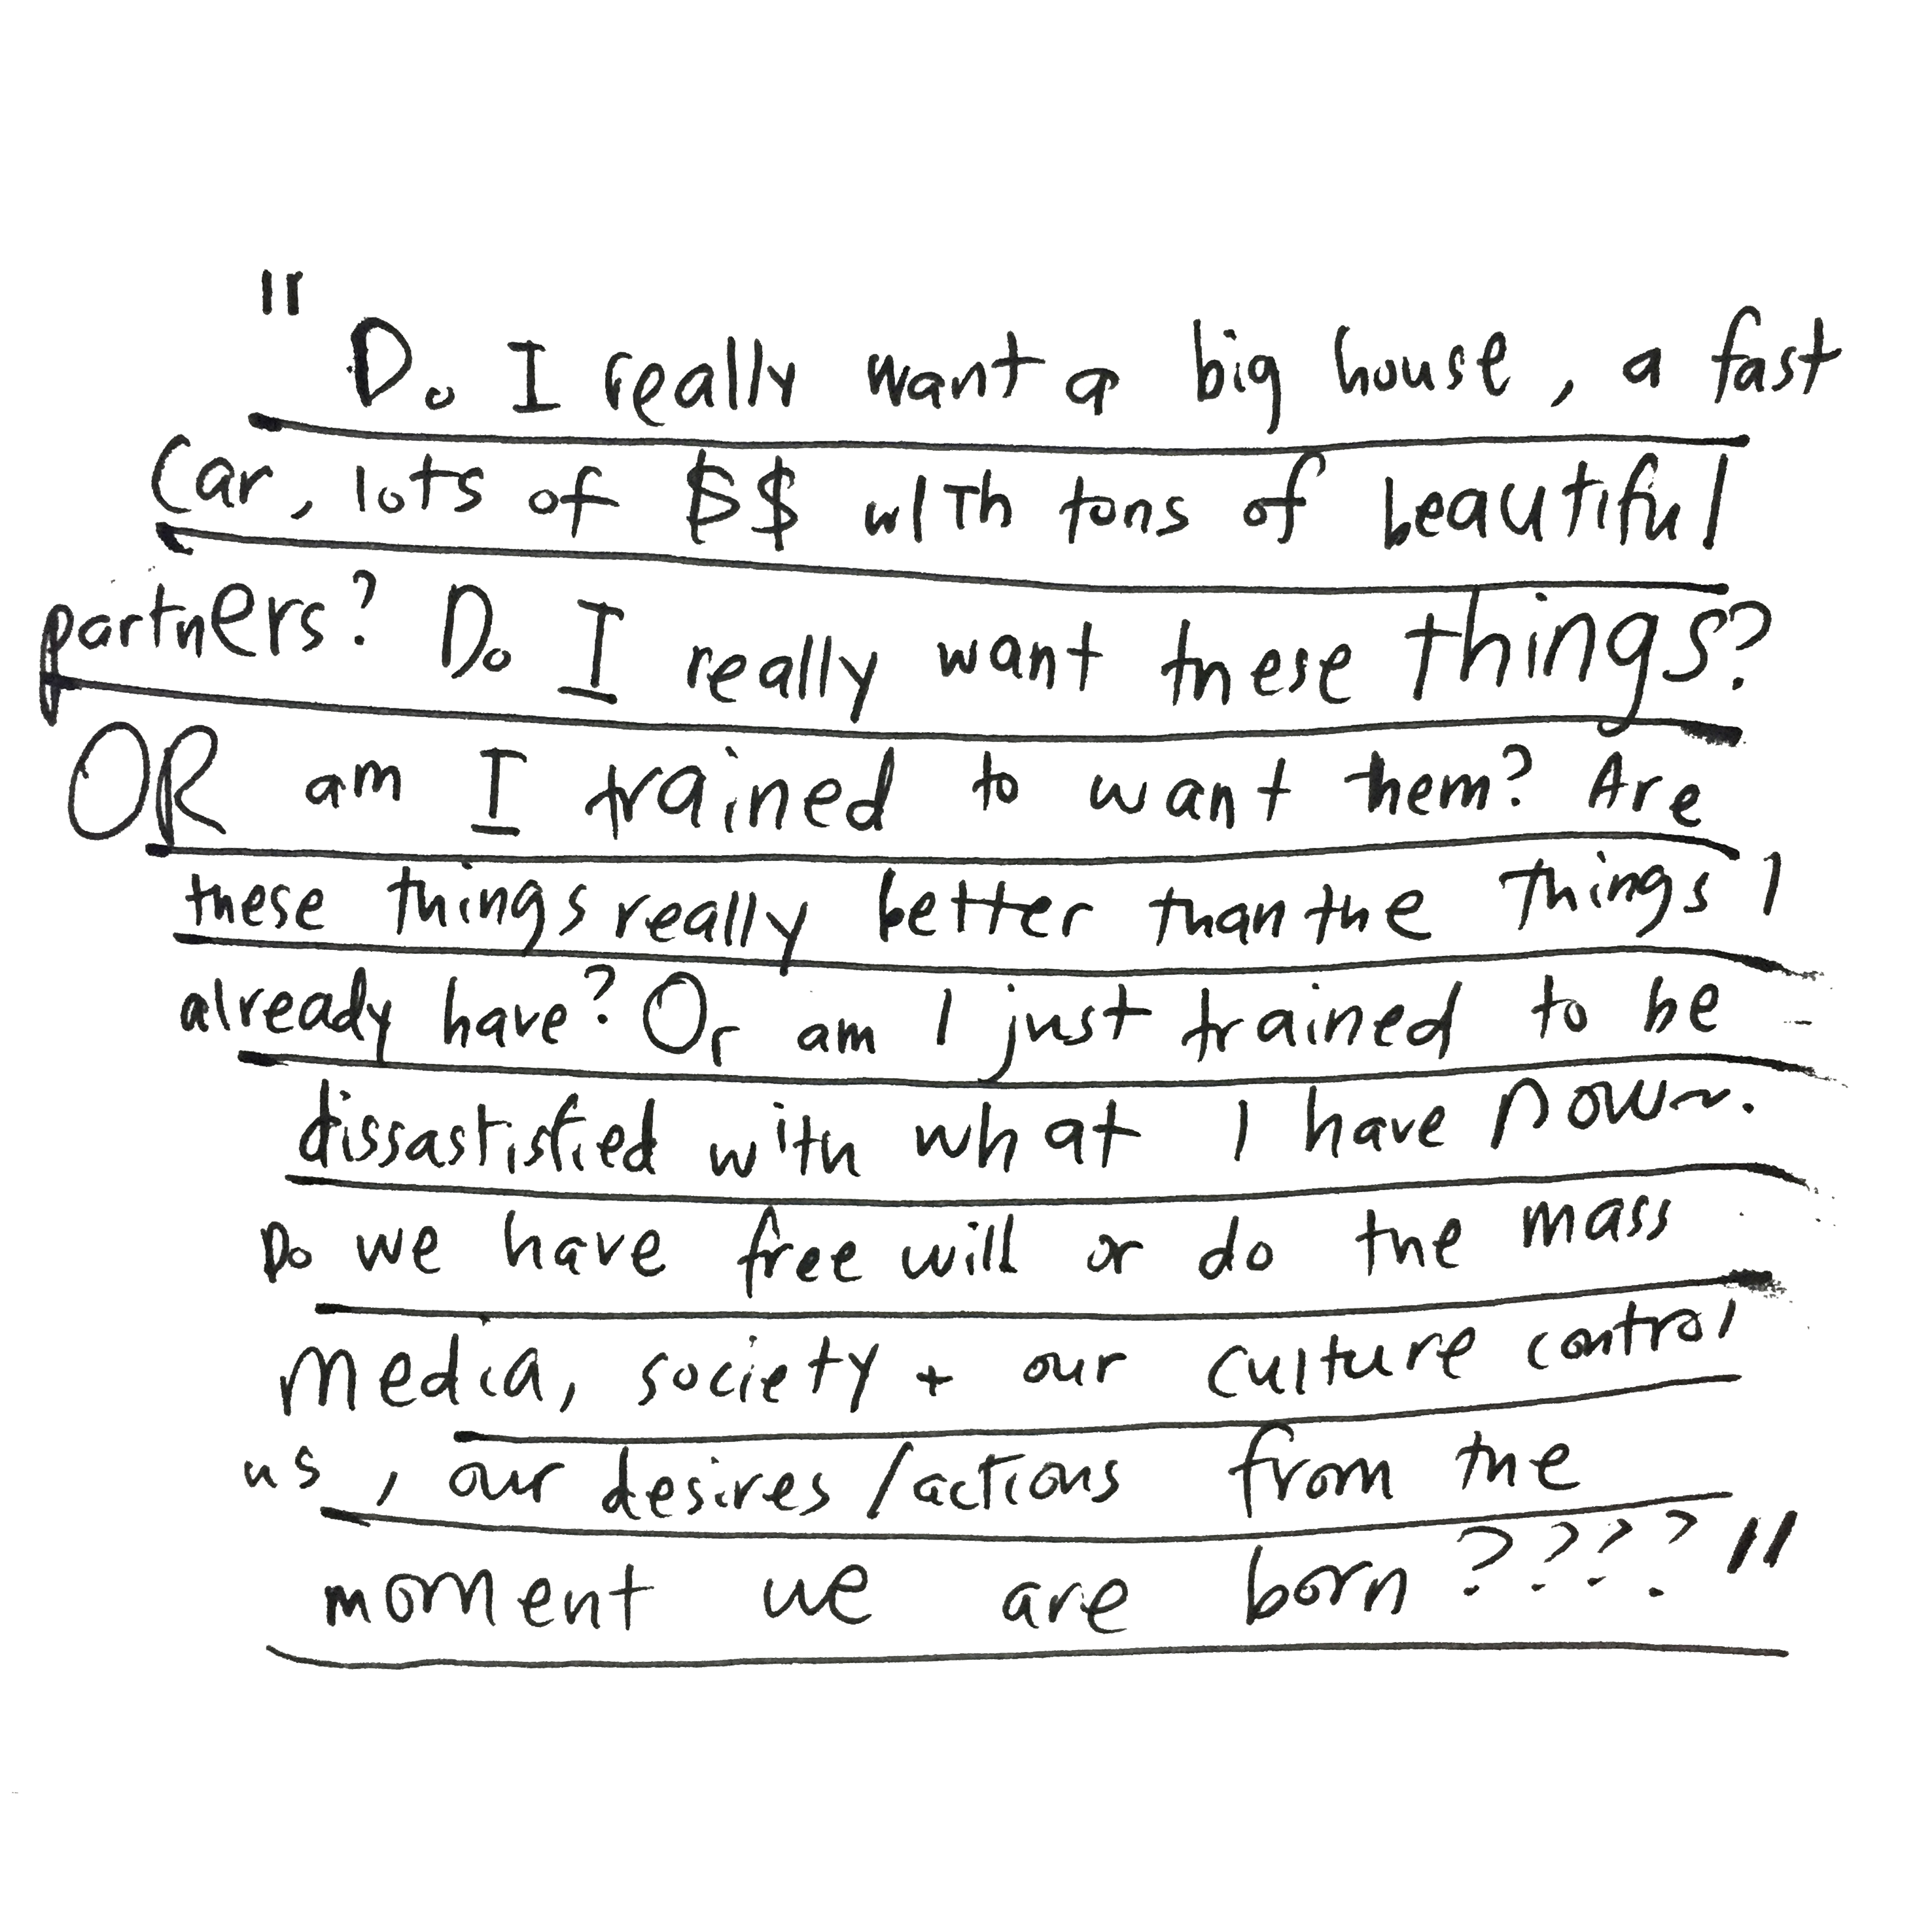 "Do I really want a big house, a fast
car, lots of $$ with tons of beautiful
partners? Do I really want these things?
OR am I trained to want them? Are
these things really better than the things I
already have? Or am I just trained to be
dissastisfied with what I have now~.
Do we have free will or do the mass
media, society + our culture control
us, our desires/actions from the
moment we are born????"